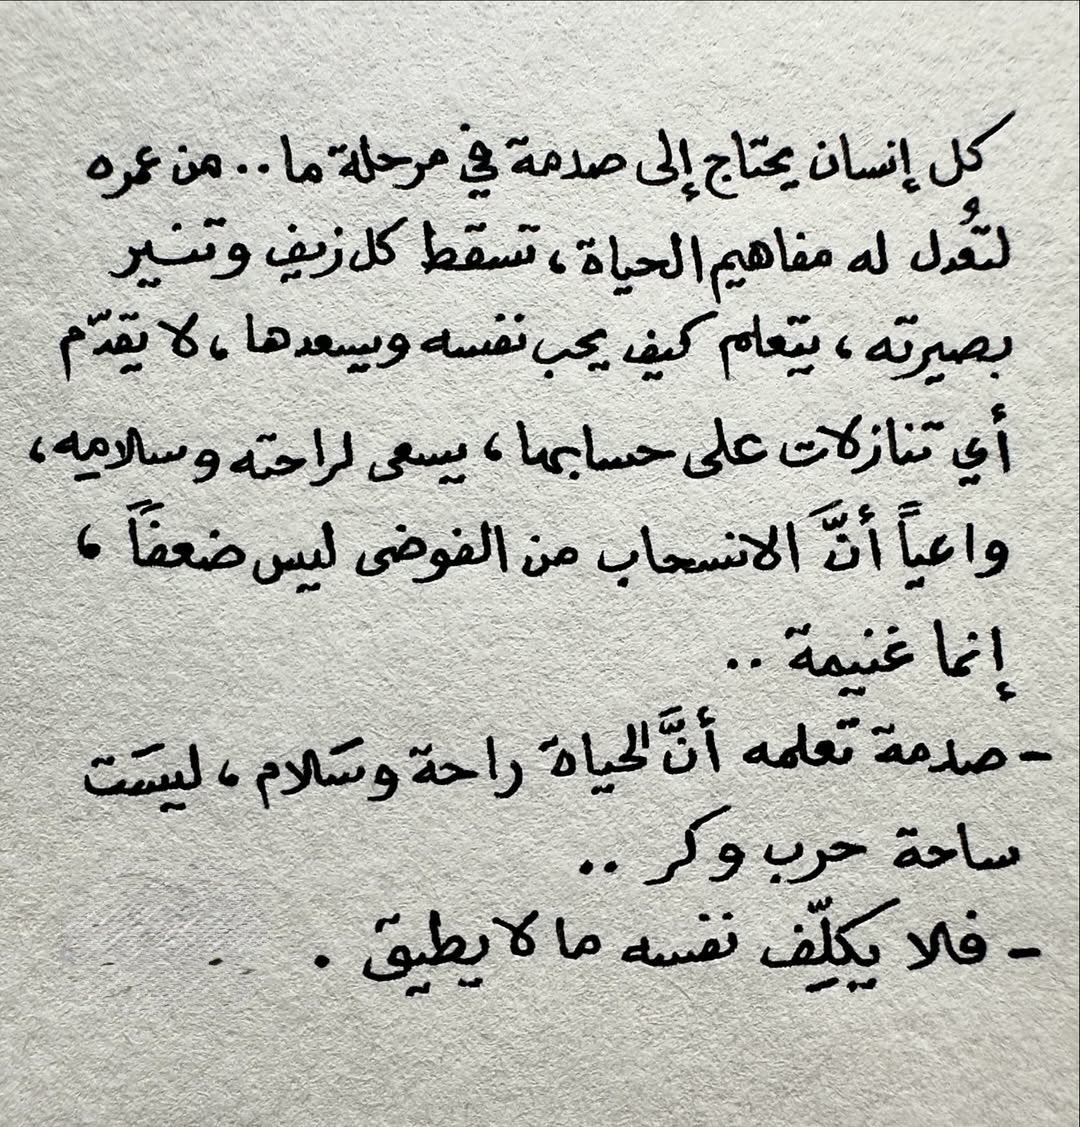 كل إنسان يحتاج إلى صدمة في مرحلة ما.. من عمره
لتُعدل له مفاهيم الحياة، تسقط كل زيفٍ وتنير
بصيرته، يتعلم كيف يحب نفسه ويسعدها، لا يقدّم
أي تنازلات على حسابها، يسعى لراحته وسلامِه،
واعياً أنَّ الانسحاب من الفوضى ليس ضعفاً،
إنما غنيمة ..
- صدمة تعلمه أنَّ الحياة راحة وسَلام، ليسَت
ساحة حرب وكر ..
- فلا يكلِّف نفسه ما لا يطيق .